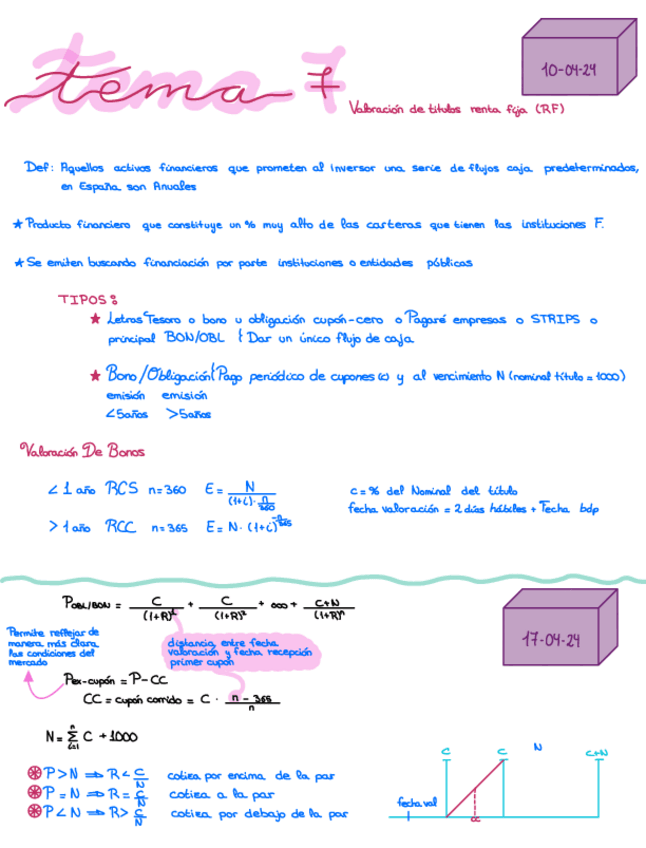 tema 7
10-04-24
Valoración de títulos renta fija (RF)
Def: Aquellos activos financieros que prometen al inversor una serie de flujos caja predeterminados,
en España son Anuales
★ Producto financiero que constituye un % muy alto de las carteras que tienen las instituciones F.
★ Se emiten buscando financiación por parte instituciones o entidades públicas
TIPOS:
★ Letras Tesoro o bono u obligación cupón-cero o Pagaré empresas o STRIPS o
principal BON/OBL { Dar un único flujo de caja
★ Bono/Obligación { Pago periódico de cupones (c) y al vencimiento N (nominal título = 1000)
emisión emisión
<5años >5años
Valoración De Bonos
< 1 año RCS n=360 E = N / (1+i)· n/360
c = % del Nominal del título
> 1 año RCC n=365 E = N· (1+i)^-n/365
fecha valoración = 2 días hábiles + Fecha bdp
P OBL/BON = C/(1+R)^t + C/(1+R)² + ooo + C+N/(1+R)ⁿ
17-04-24
Permite reflejar de
manera más clara
las condiciones del
mercado
distancia entre fecha
valoración y fecha recepción
primer cupón
Pex-cupón = P-CC
CC = cupón corrido = C · n - 365 / n
N = n Σ i=1 C + 1000
P > N ⇒ R < C/N cotiza por encima de la par
P = N ⇒ R = C/N cotiza a la par
P < N ⇒ R > C/N cotiza por debajo de la par
C C N C+N
fecha val
cc